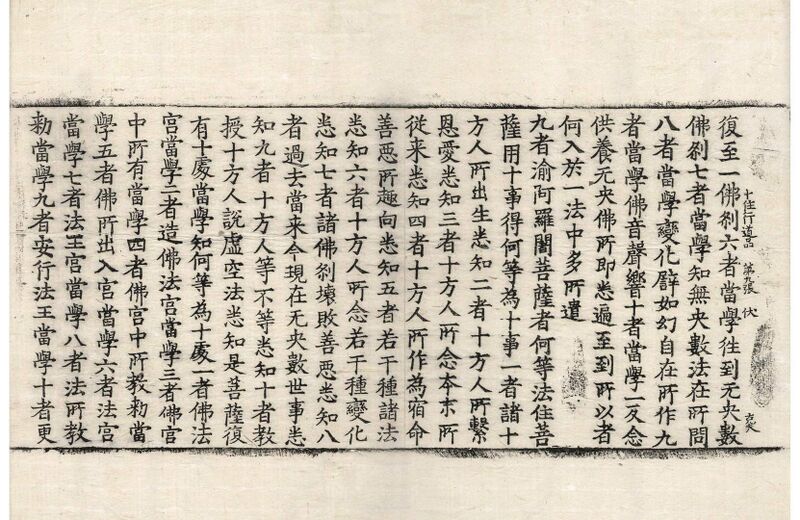 十住行道品 第九張 伏
復至一佛刹六者當學徃到无央數
佛刹七者當學知無央數法在所問
八者當學變化譬如幻自在所作九
者當學佛音聲響十者當學一反念
供養无央佛所即悉遍至到所以者
何入於一法中多所遣
九者渝阿羅闍菩薩者何等法住菩
薩用十事得何等為十事一者諸十
方人所出生悉知二者十方人所繫
恩愛悉知三者十方人所念本末所
従来悉知四者十方人所作為宿命
善惡所趣向悉知五者若干種諸法
悉知六者十方人所念若干種變化
悉知七者諸佛刹壞敗善惡悉知八
者過去當来今現在无央數世事悉
知九者十方人等不等悉知十者教
授十方人說虛空法悉知是菩薩復
有十處當學知何等為十處一者佛法
宮當學二者造佛法宮當學三者佛宮
中所有當學四者佛宮中所教勑當
學五者佛所出入宮當學六者法宮
當學七者法王宮當學八者法所教
勑當學九者安行法王當學十者更